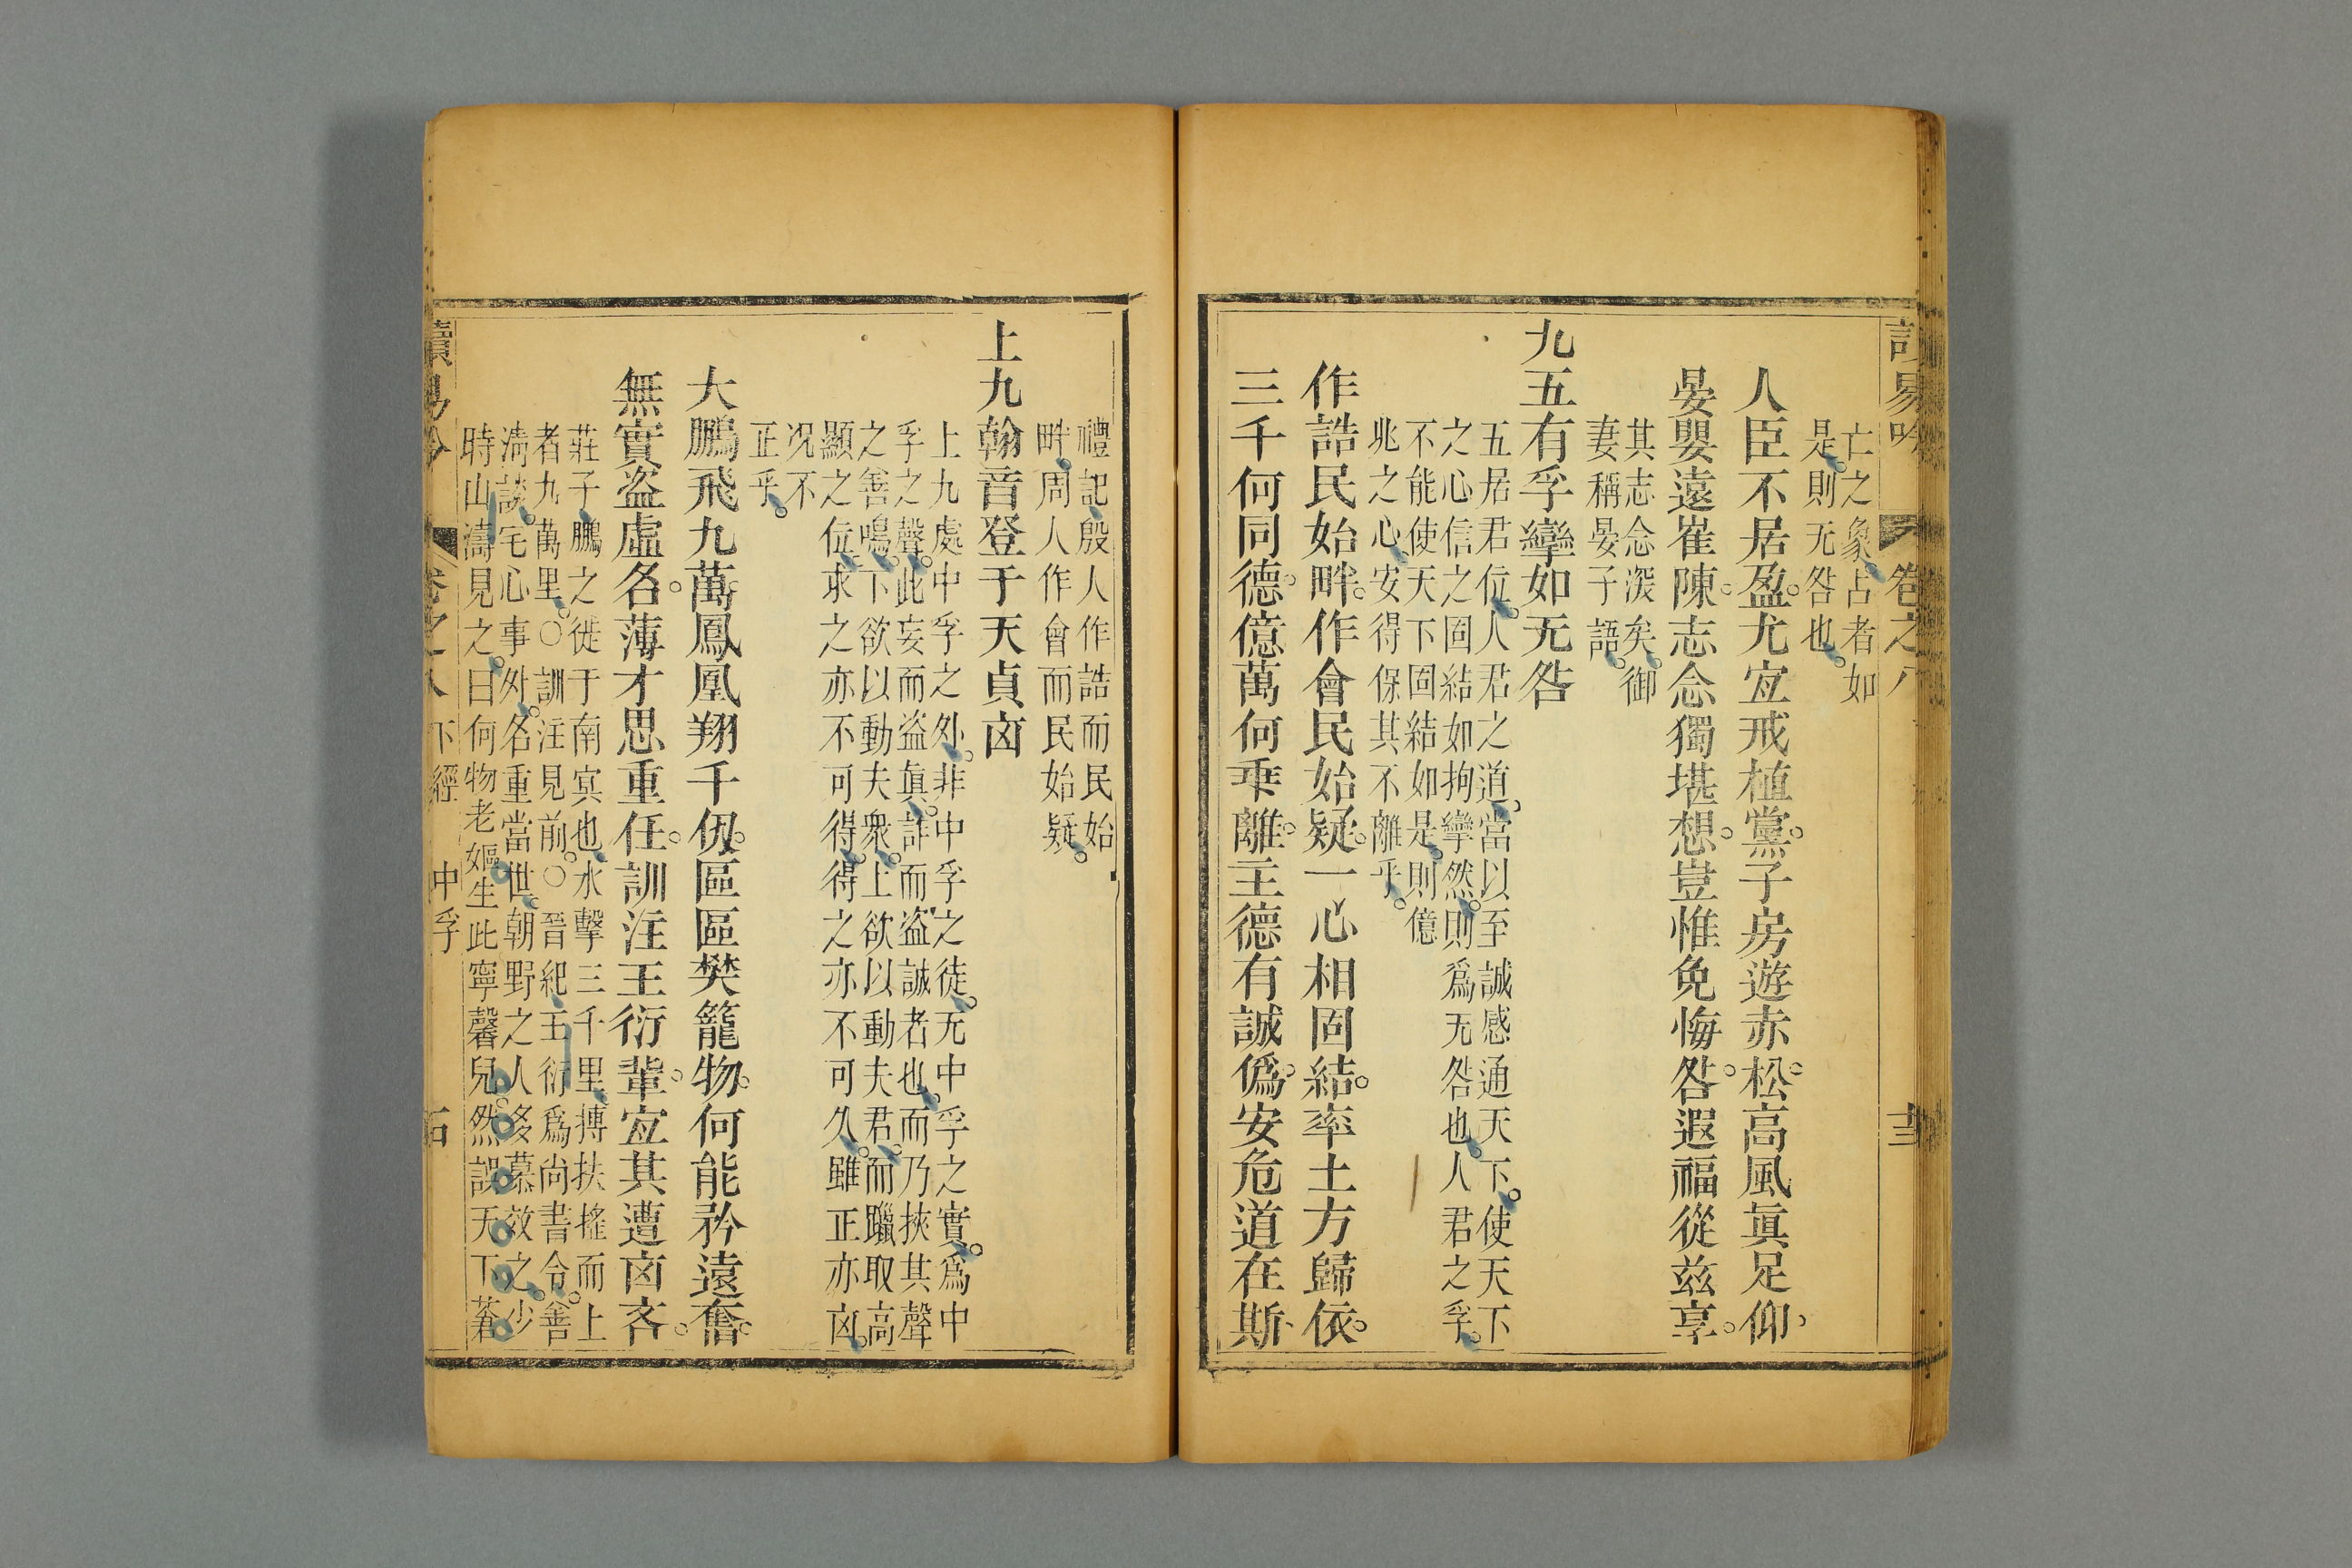 讀易吟 卷之八
亡之象占者如
是則无咎也
人臣不居盈尤宐戒植黨子房遊赤松高風眞足仰
晏嬰遠崔陳志念獨堪想豈惟免悔咎遐福從兹享
其志念深矣御
妻稱晏子語
九五有孚攣如无咎
五居君位人君之道當以至誠感通天下使天下
之心信之固結如拘攣然則爲无咎也人君之孚
不能使天下固結如是則億
兆之心安得保其不離乎
作誥民始畔作會民始疑一心相固結率土方歸依
三千何同德億萬何乖離主德有誠僞安危道在斯
禮記殷人作誥而民始
畔周人作會而民始疑
上九翰音登于天貞凶
上九處中孚之外非中孚之徒无中孚之實爲中
孚之聲此妄而盜眞詐而盜誠者也而乃挾其聲
之善鳴下欲以動夫衆上欲以動夫君而躐取高
顯之位求之亦不可得得之亦不可久雖正亦凶
况不
正乎
大鵬飛九萬鳳凰翔千仞區區樊籠物何能矜遠奮
無實盜虛名薄才思重任訓注王衍輩宐其遭凶吝
莊子鵬之徙于南㝠也水擊三千里摶扶搖而上
者九萬里○訓注見前○晉紀王衍爲尚書令善
淸談宅心事外名重當世朝野之人多慕效之少
時山濤見之曰何物老嫗生此寧馨兒然誤天下蒼
讀易吟 卷之八 下經 中孚